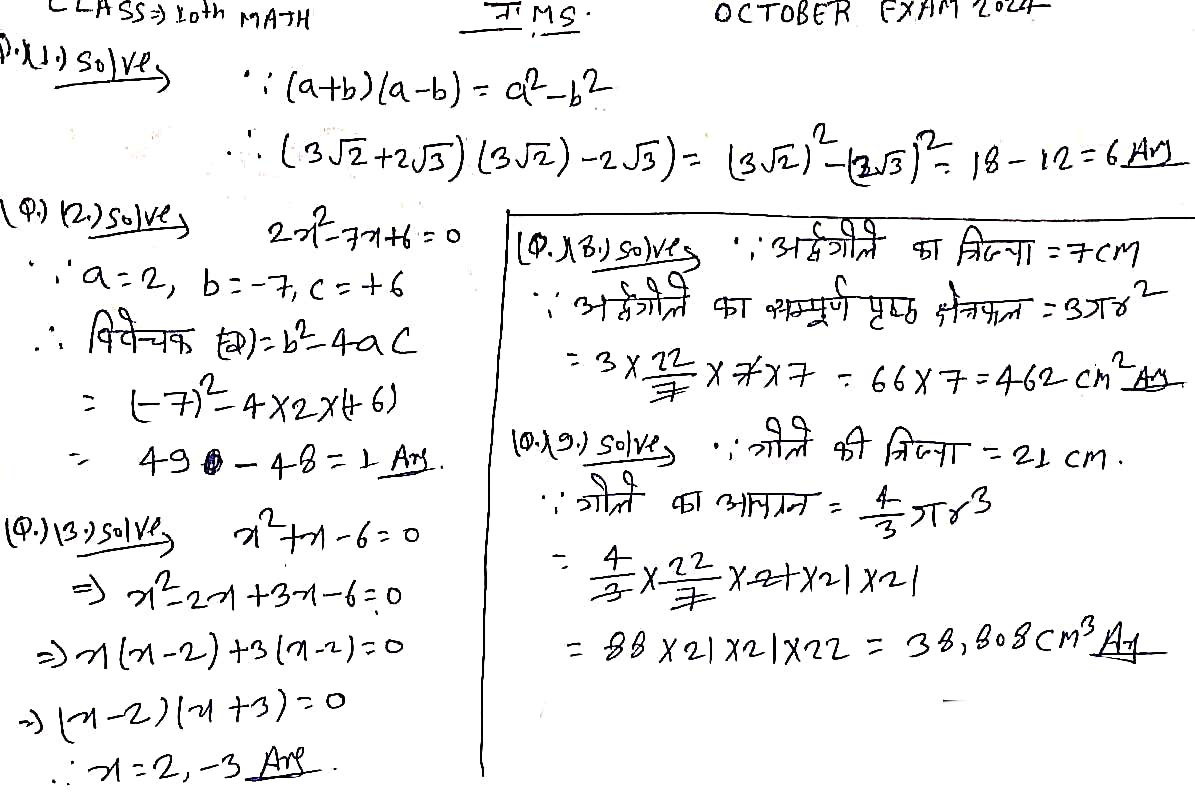 CLASS⇒ 10th MATH   T.M.S.   OCTOBER EXAM 2024
Q.)(1.) Solve,   ∵ (a+b)(a-b) = a²-b²
∴ (3√2+2√3)(3√2)-2√3) = (3√2)²-(2√3)² = 18-12=6 Ans
(Q.)(2.) Solve,   2x²-7x+6=0
∵ a=2, b=-7, c=+6
∴ विवेचक (D)=b²-4ac
= (-7)²-4×2×(+6)
= 49 - 48 = 1 Ans.
(Q.)(3.) Solve,   x²+x-6=0
⇒ x²-2x+3x-6=0
⇒ x(x-2)+3(x-2)=0
⇒ (x-2)(x+3)=0
∴ x=2,-3 Ans.
(Q.)(8.) Solve,   ∵ अर्द्धगोले का त्रिज्या = 7cm
∵ अर्द्धगोले का सम्पूर्ण पृष्ठ क्षेत्रफल = 3πr²
= 3 × 22/7 × 7 × 7 = 66×7=462 cm² Ans
(Q.)(9.) Solve,   ∵ गोले की त्रिज्या = 21 cm.
∵ गोले का आयतन = 4/3 πr³
= 4/3 × 22/7 × 21 × 21 × 21
= 88 × 21 × 21 × 22 = 38,808 cm³ Ans